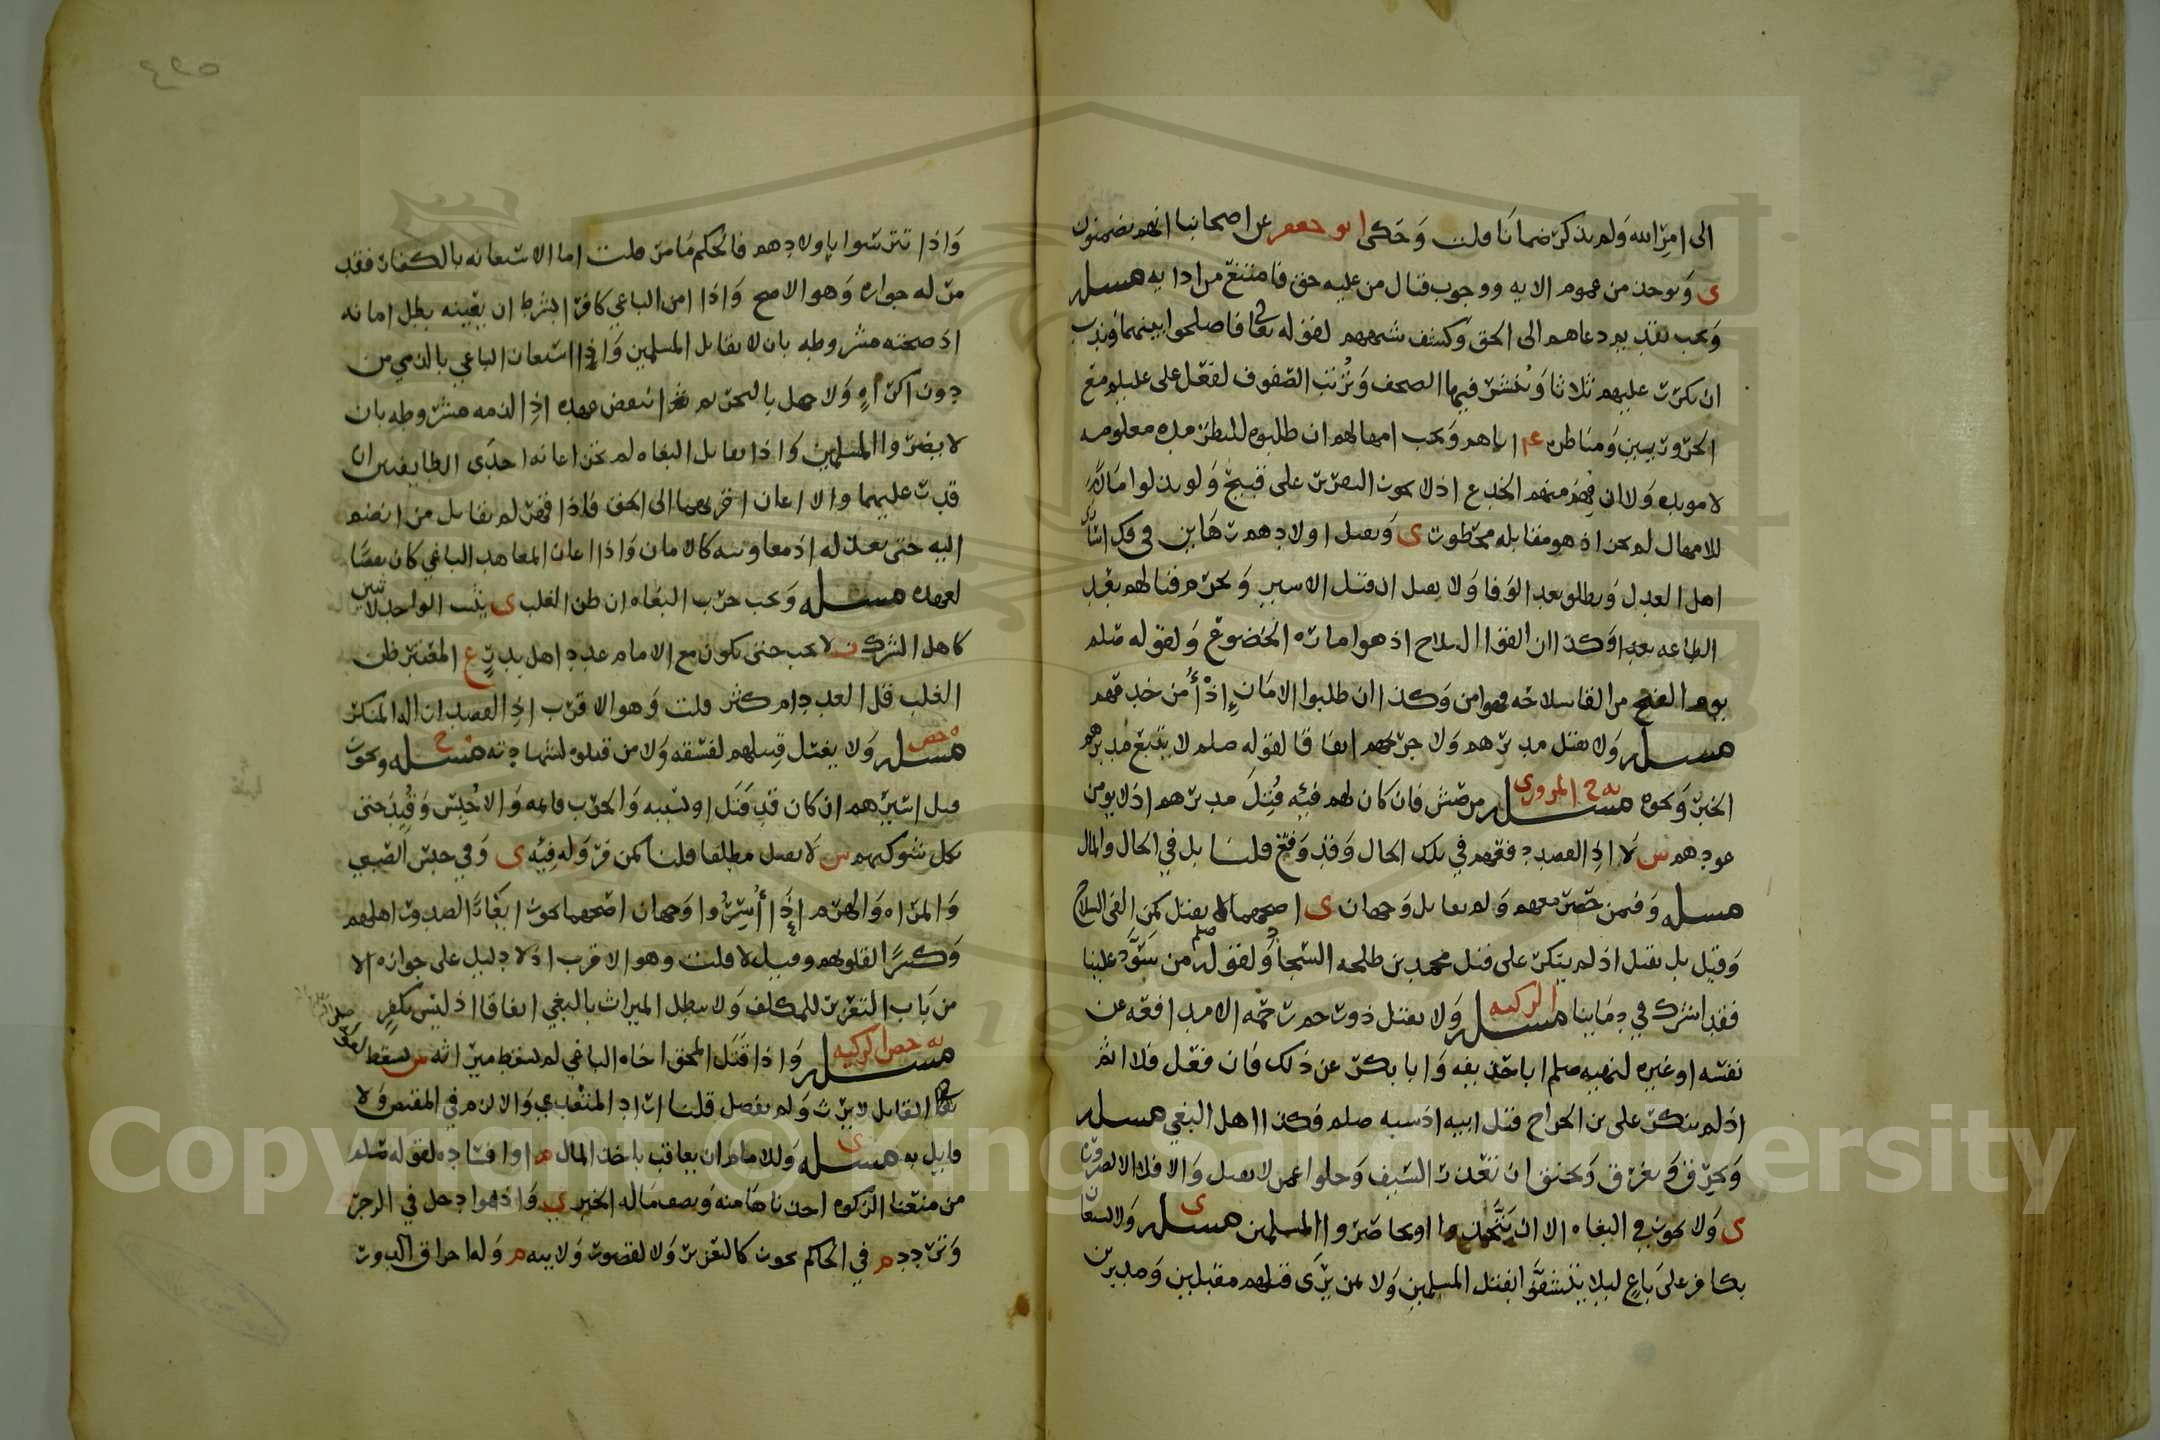 الى امر الله ولم يذكر ضمانا قلت وحكى ابو جعفر عن اصحابنا انهم يضمنون
ى ويوخذ من عموم الايه ووجوب قتال من عليه حق فامتنع من ادايه مسله
ويجب تقديم دعاهم الى الحق وكشف شبههم لقوله تعالى فاصلحوا بينهما وندب
ان يكرر عليهم ثلاثا وينشر فيها الصحف وترتب الصفوف لفعل على عليلم مع
الحروريين ومناظره ع اياهم ويجب امهالهم ان طلبوه للنظر مده معلومه
لا موبده ولا ان فهم منهم الخدع اذ لا يجوز التقرير على قبيح ولو بذلوا مالا
للامهال لم يجز اذ هو مقابله محظور ى ويقبل اولادهم رهاين في فك اسارى
اهل العدل ويطلق بعد الوفا ولا يقبل ان قتل الاسير ويحرم قتالهم بعد
الطاعه بعد وكذا ان القوا السلاح اذ هو اماره الخضوع ولقوله صلم
يوم الفتح من القا سلاحه فهو امن وكذا ان طلبوا الامان اذا من خدعهم
مسله ولا يقتل مدبرهم ولا جريحهم اتفاقا لقوله صلم لا يتبع مدبرهم
الخبر ونحوه مسله ه ح المروزي مرصش فان كان لهم فيه قتل مدبرهم اذ لا يومن
عودهم س لا اذ القصد دفعهم في تلك الحال وقد وقع قلنا بل في الحال والمال
مسله وفمن حضر معهم ولم يقاتل وجهان ى اصحهما لا يقتل كمن القى السلاح
وقيل بل يقتل اذ لم ينكر على قتل محمد بن طلحه السجاد ولقوله صلم من سود علينا
فقد اشرك في دماينا مسله الزكيه ولا يقتل ذو رحم رحمه الا مدافعه عن
نفسه او غيره لنهيه صلم ابا حذيفه وابا بكر عن ذلك فان فعل فلا اثم
اذ لم ينكر على بن الجراح قتل ابيه اذ سبه صلم وكذا اهل البغي مسله
ويحرق ويغرق ويخنق ان تعذر السيف وخلوا عمن لا يقتل والا فلا الا لضروره
ى ولا يجوز في البغاه الا ان او يحاصروا المسلمين مسله ى ولا يستعان
بكافر على باغ ليلا يتشفوا بقتل المسلمين ولا بمن يرى قتلهم مقبلين ومدبرين
واذا تترسوا باولادهم فالحكم ما مر قلت اما الاستعانه بالكفار فقد
مر له جوازه وهو الاصح واذا امن الباغي كافرا بشرط ان يعينه بطل امانه
اذ صحته مشروطه بان لا يقاتل المسلمين واذا استعان الباغي بالذمي من
دون اكراه ولا جهل بالتحريم انتقض عهده اذ الذمه مشروطه بان
لا يضروا المسلمين واذا تقاتل البغاه لم تجز اعانه احدى الطايفتين ان
قدر عليهما والا اعان اقربهما الى الحق فاذا قهر لم يقاتل من انضم
اليه حتى يعذر له اذ معاونته كالامان واذا اعان المعاهد الباغي كان نقضا
لعهده مسله ويجب حرب البغاه ان ظن الغلب ى يثبت الواحد لاثنين
كاهل الشرك ن لا يجب حتى يكون مع الامام عدد اهل بدر ع المعتبر ظن
الغلب قل العدد ام كثر قلت وهو الاقرب اذ القصد ازاله المنكر
مسله ه حص ولا يغسل قتيلهم لفسقه ولا من قتلوه لشهادته مسله ح ويجوز
قتل اسيرهم ان كان قد قتل او تسبب والحرب قايمه والا حبس وقيد حتى
تكل شوكتهم س لا يقتل مطلقا قلنا كمن فر وله فيه ى وفي حبس الصبي
والمراه والهرم اذا اسروا وجهان اصحهما يجوز ايغارا لصدور اهلهم
وكسرا لقلوبهم وقيل لا قلت وهو الاقرب اذ لا دليل على جوازه الا
من باب التعزير للمكلف ولا يبطل الميراث بالبغي اتفاقا اذ ليس بكفر
مسله ه حص الزكيه واذا قتل المحق اخاه الباغي لم يسقط ميراثه س يسقط لقوله صلم
القاتل لا يرث ولم يفصل قلنا اراد المتعدي والا لزم في المقتص ولا
قايل به مسله ى وللامام ان يعاقب باخذ المال م او افساده لقوله صلم
من منعنا الزكوه اخذناها منه ونصف ماله الخبر ى واذ هو ادخل في الزجر
وتردد م في الحاكم يجوز كالتعزير ولا لقصور ولايته م وله احراق الدور